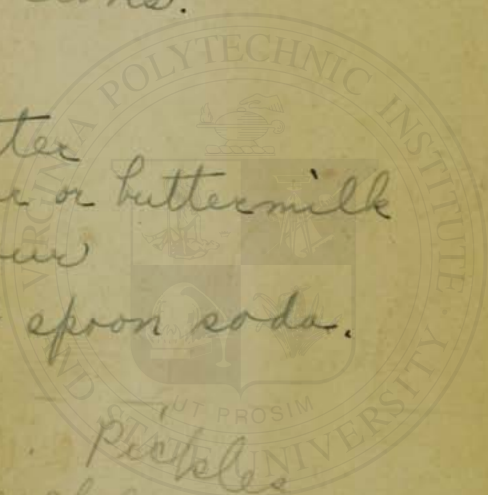 ter
r or buttermilk
our
spoon soda.
Pickles
VIRGINIA POLYTECHNIC INSTITUTE
AND STATE UNIVERSITY
UT PROSIM